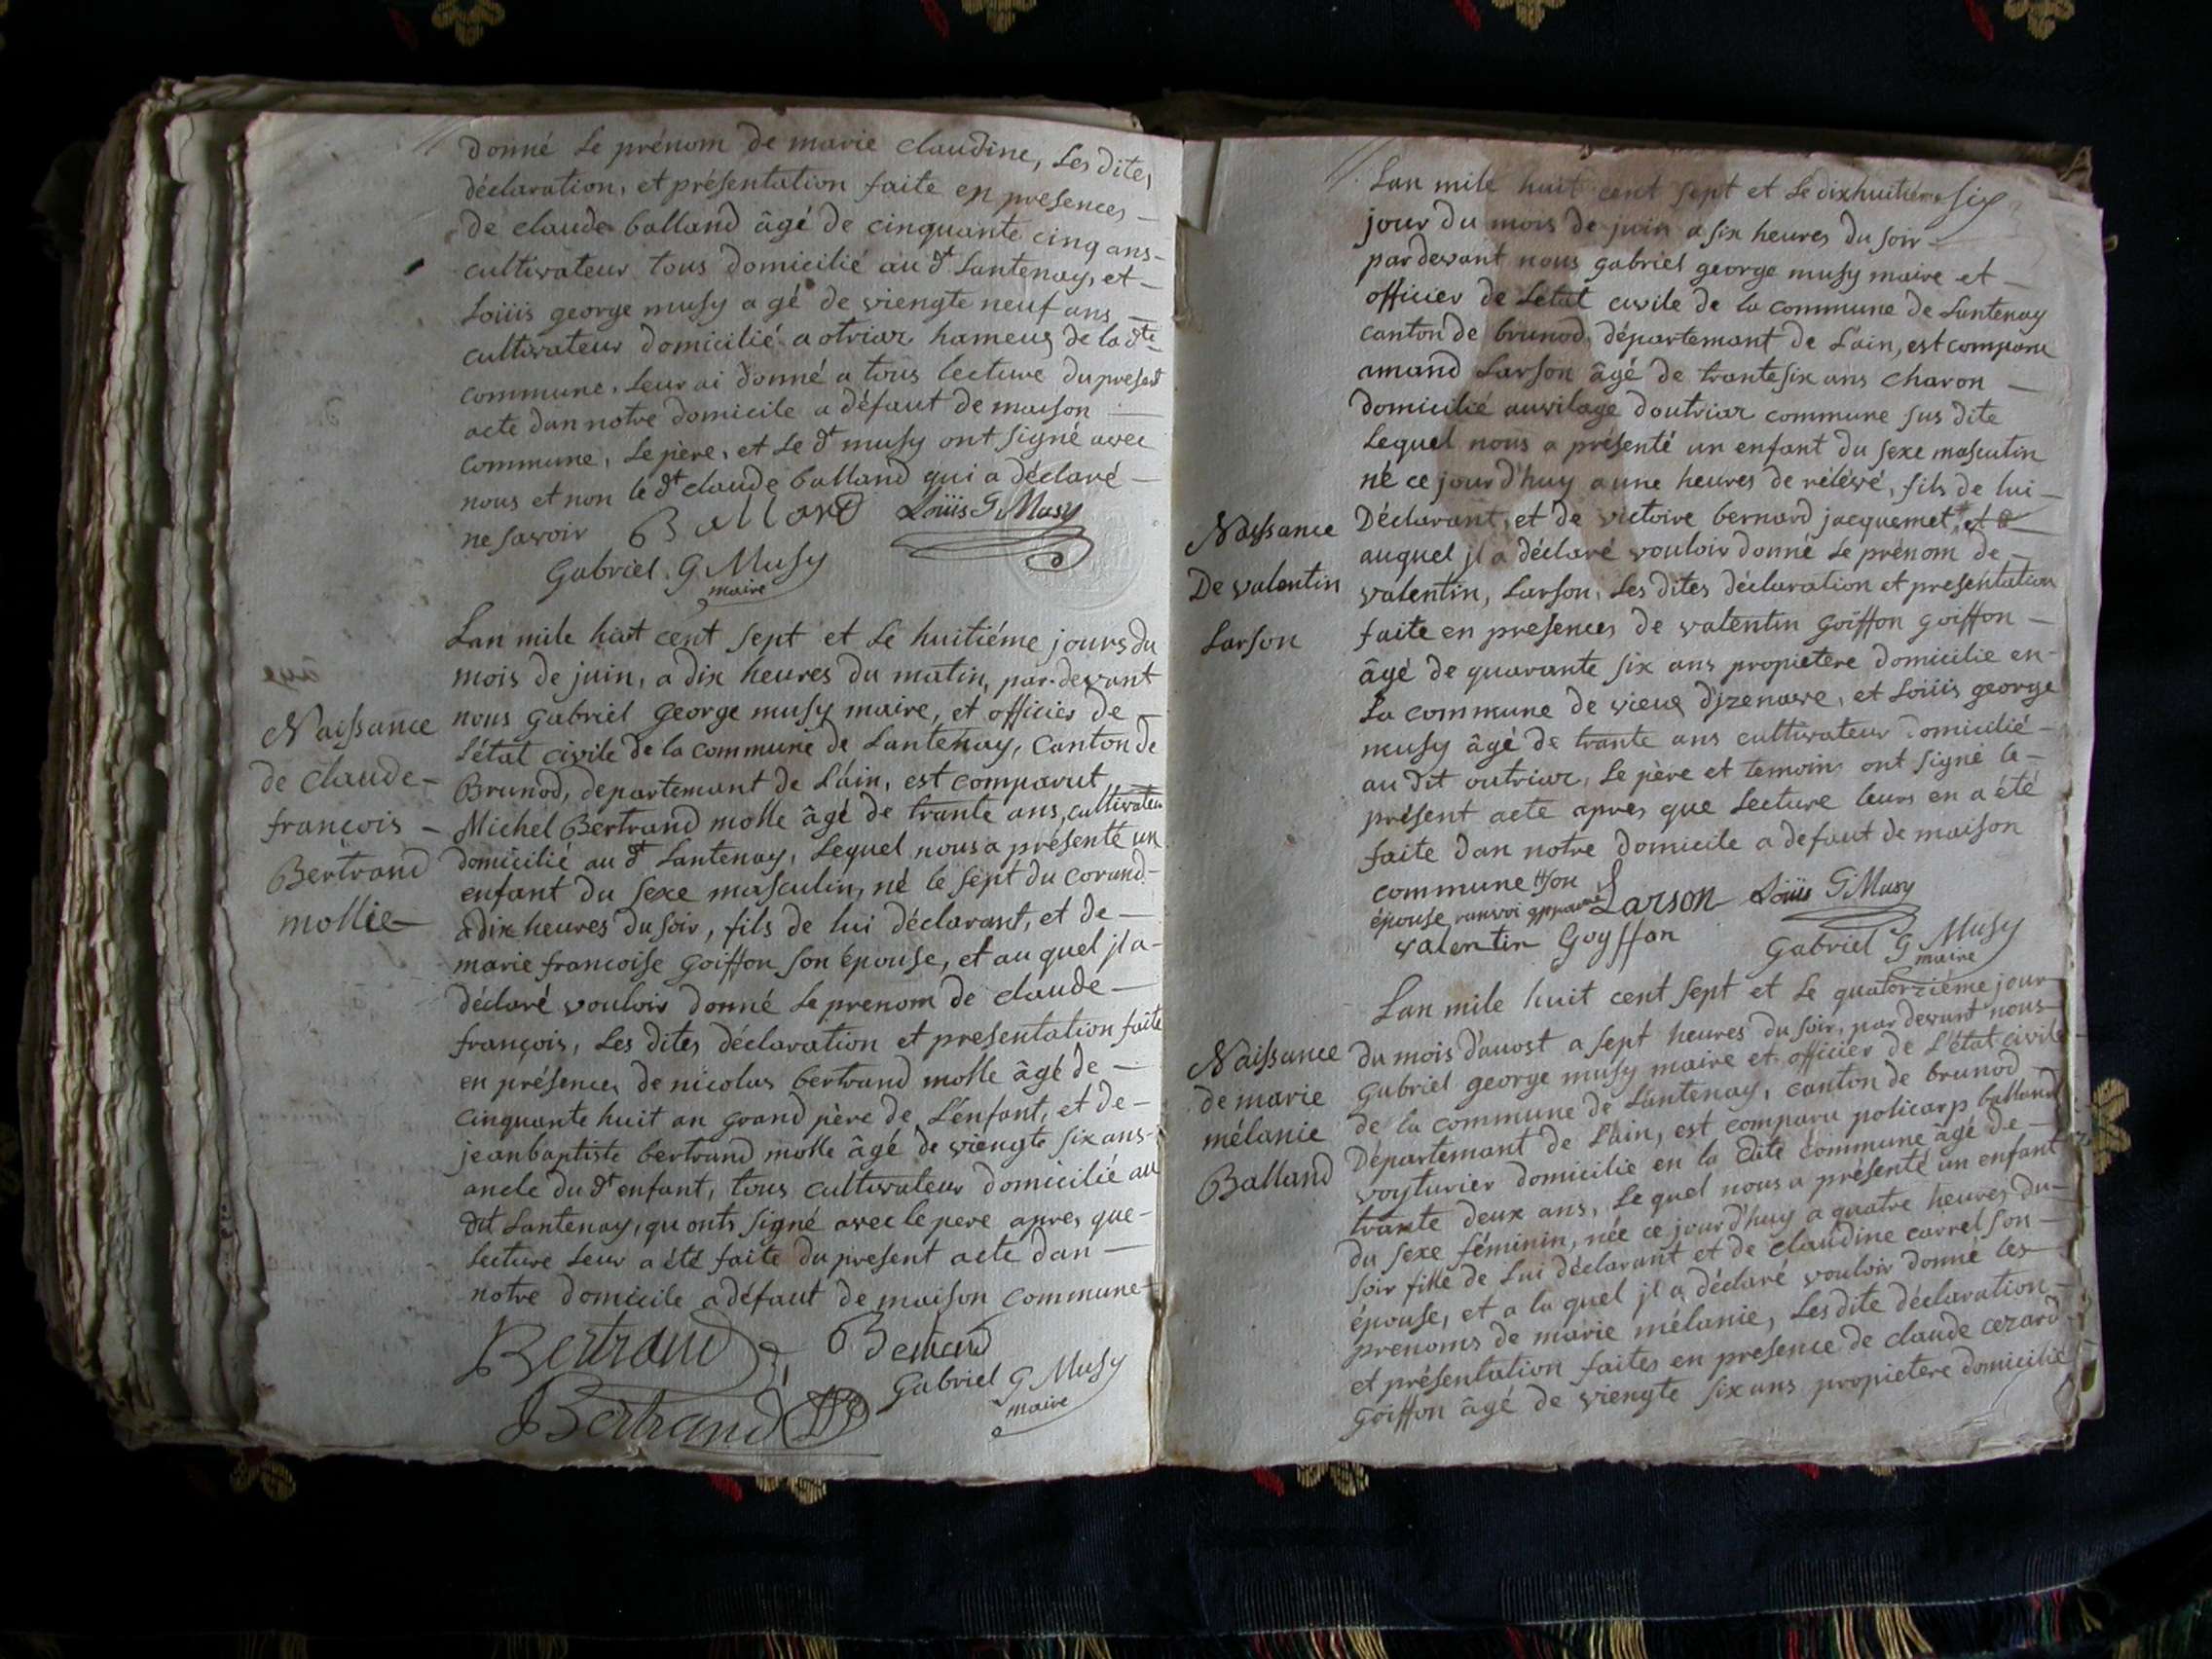 donné le prénom de marie claudine, les dites
déclaration, et présentation faite en presences
de claude balland âgé de cinquante cinq ans
cultivateur tous domicilié au dt Lantenay, et
Loüis george musy agé de viengte neuf ans
cultivateur domicilié a otriaz hameuq de la dte
commune. leur ai donné a tous lecture du present
acte dan notre domicile a défaut de maison
commune, le père, et le dt musy ont signé avec
nous et non le dt claude balland qui a déclaré
ne savoir Balland Loüis G Musy
Gabriel G Musy
maire
Naissance
de claude
françois
Bertrand
mollie
Lan mile huit cent sept et le huitiéme jours du
mois de juin, a dix heures du matin, par devant
nous gabriel george musy maire, et officier de
l'état civile de la commune de Lantenay, canton de
Brunod, departemant de l'ain, est comparut
Michel Bertrand molle âgé de trante ans, cultivateur
domicilié au dt Lantenay, lequel nous a présenté un
enfant du sexe masculin, né le sept du corand
a dix heures du soir, fils de lui déclarant, et de
marie françoise goiffon son épouse, et au quel jl a
déclaré vouloir donné le prenom de claude
françois, les dites déclaration et presentation faite
en présences de nicolas bertrand molle âgé de
cinquante huit an grand père de l'enfant, et de
jean baptiste bertrand molle âgé de viengte six ans
oncle du dt enfant, tous cultivateur domicilié au
dit Lantenay, qu onts signé avec le pere apres que
lecture leur a été faite du present acte dan
notre domicile a défaut de maison commune
Bertrand Bertrand
Gabriel G Musy
maire
Bertrand
Lan mile huit cent sept et le dixhuitieme six
jour du mois de juin a six heures du soir
par devant nous gabriel george musy maire et
officier de l'état civile de la commune de Lantenay
canton de brunod, départemant de l'ain, est comparu
amand Larson âgé de trante six ans charon
domicilié au vilage doutriaz commune sus dite
lequel nous a présenté un enfant du sexe masculin
né ce jour d'huy a une heures de rélévé, fils de lui
Déclarant, et de victoire bernard jacquemet, et
auquel jl a déclaré vouloir donné le prénom de
valentin, Larson, les dites déclaration et presentation
faite en presences de valentin goiffon goiffon
âgé de quarante six ans propietere domicilie en
la commune de vieuq d'jzenave, et Loüis george
musy âgé de trante ans cultivateur domicilié
au dit outriaz, le père et temoins ont signé le
présent acte apres que lecture leurs en a été
faite dan notre domicile a defaut de maison
commune son
épouse ranvoi approuvé Larson Loüis G Musy
valentin Goyffon Gabriel G Musy
maire
Naissance
De valentin
Larson
Lan mile huit cent sept et le quatorziéme jour
du mois d'auost a sept heures du soir, par devant nous
gabriel george musy maire et officier de l'état civile
de la commune de Lantenay, canton de brunod
Départemant de l'ain, est comparu policarp balland
voyturier domicilie en la dite commune âgé de
trante deux ans, le quel nous a présenté un enfant
du sexe féminin, née ce jour d'huy a quatre heures du
soir fille de lui déclarant et de claudine carrel son
épouse, et a la quel jl a déclaré vouloir donné les
prenoms de marie mélanie, les dite déclaration
et présentation faites en presence de claude cezard
goiffon âgé de viengte six ans propietere domicilie
Naissance
de marie
mélanie
Balland